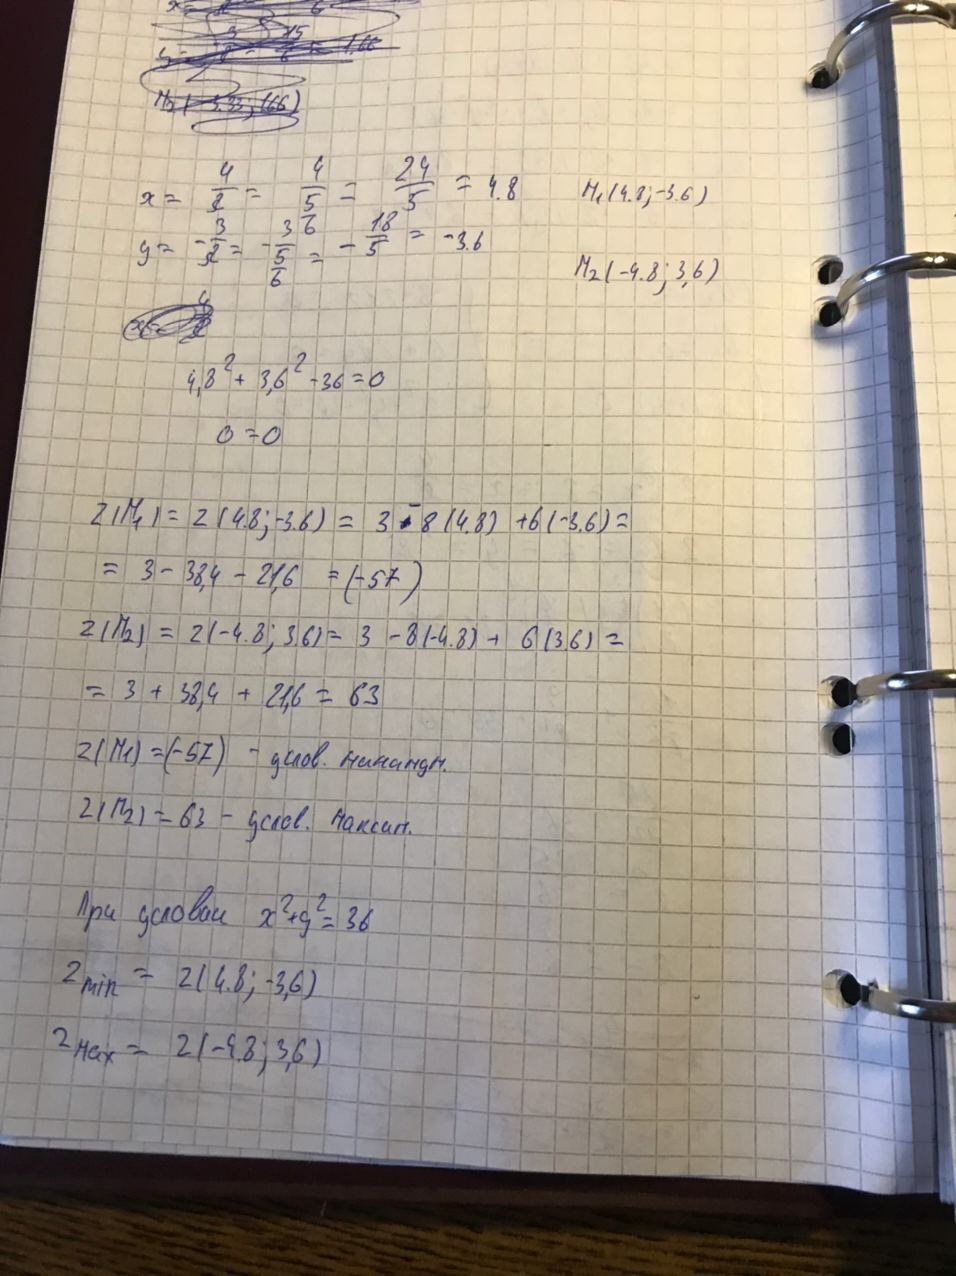 x = 4/λ = 4/(5/6) = 24/5 = 4.8 M₁(4.8; -3.6)
y = -3/λ = -3/(5/6) = -18/5 = -3.6
M₂(-4.8; 3,6)
4,8² + 3,6² - 36 = 0
0 = 0
z(M₁) = z(4.8; -3.6) = 3 - 8(4.8) + 6(-3.6) =
= 3 - 38,4 - 21,6 = (-57)
z(M₂) = z(-4.8; 3.6) = 3 - 8(-4.8) + 6(3.6) =
= 3 + 38,4 + 21,6 = 63
z(M₁) = (-57) - услов.
z(M₂) = 63 - услов. максим.
При условии x² + y² = 36
z min = z(4.8; -3,6)
z max = z(-4.8; 3,6)